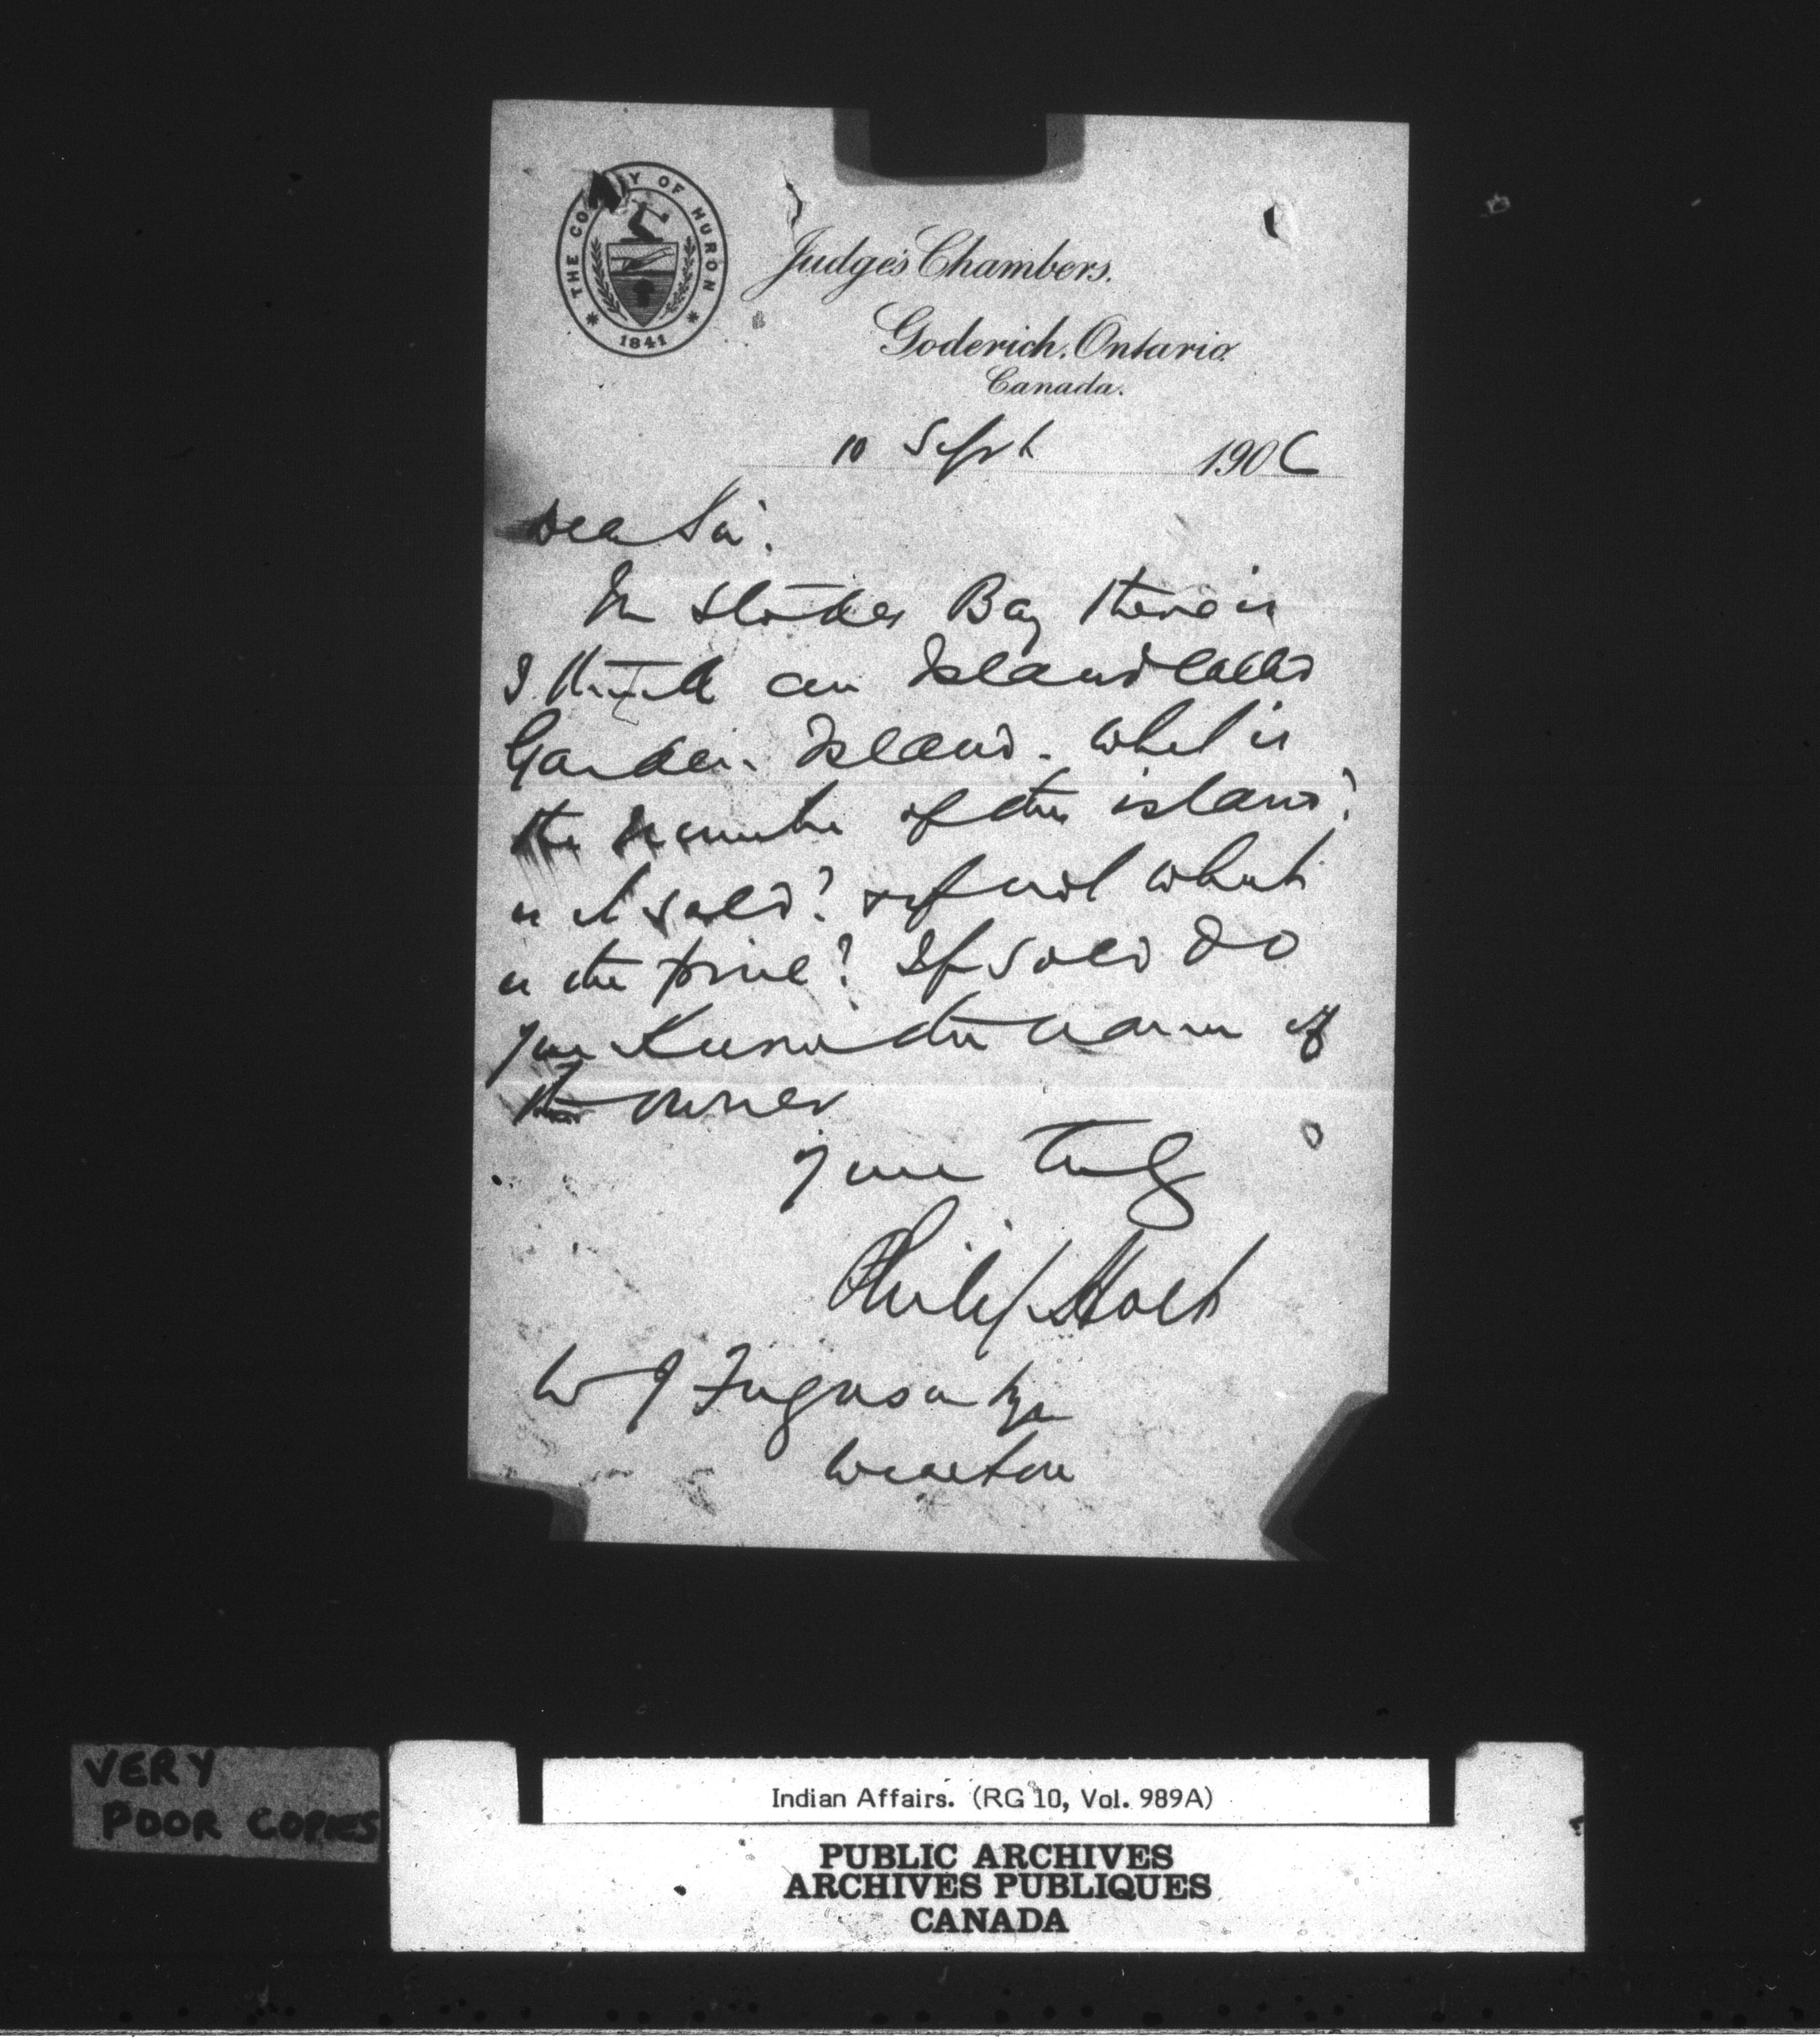 THE COUNTY OF HURON
1841
Judge's Chambers.
Goderich, Ontario.
Canada.
10 Sept 1906
Dear Sir.
In Stokes Bay there is
I think an Island called
Garden Island. What is
the number of the island?
is it sold? & if not what
is the price? If sold do
you know the name of
the owner
yours truly
Philip Holt
W J Ferguson Esq
Wiarton
VERY
POOR COPIES
Indian Affairs. (RG 10, Vol. 989A)
PUBLIC ARCHIVES
ARCHIVES PUBLIQUES
CANADA